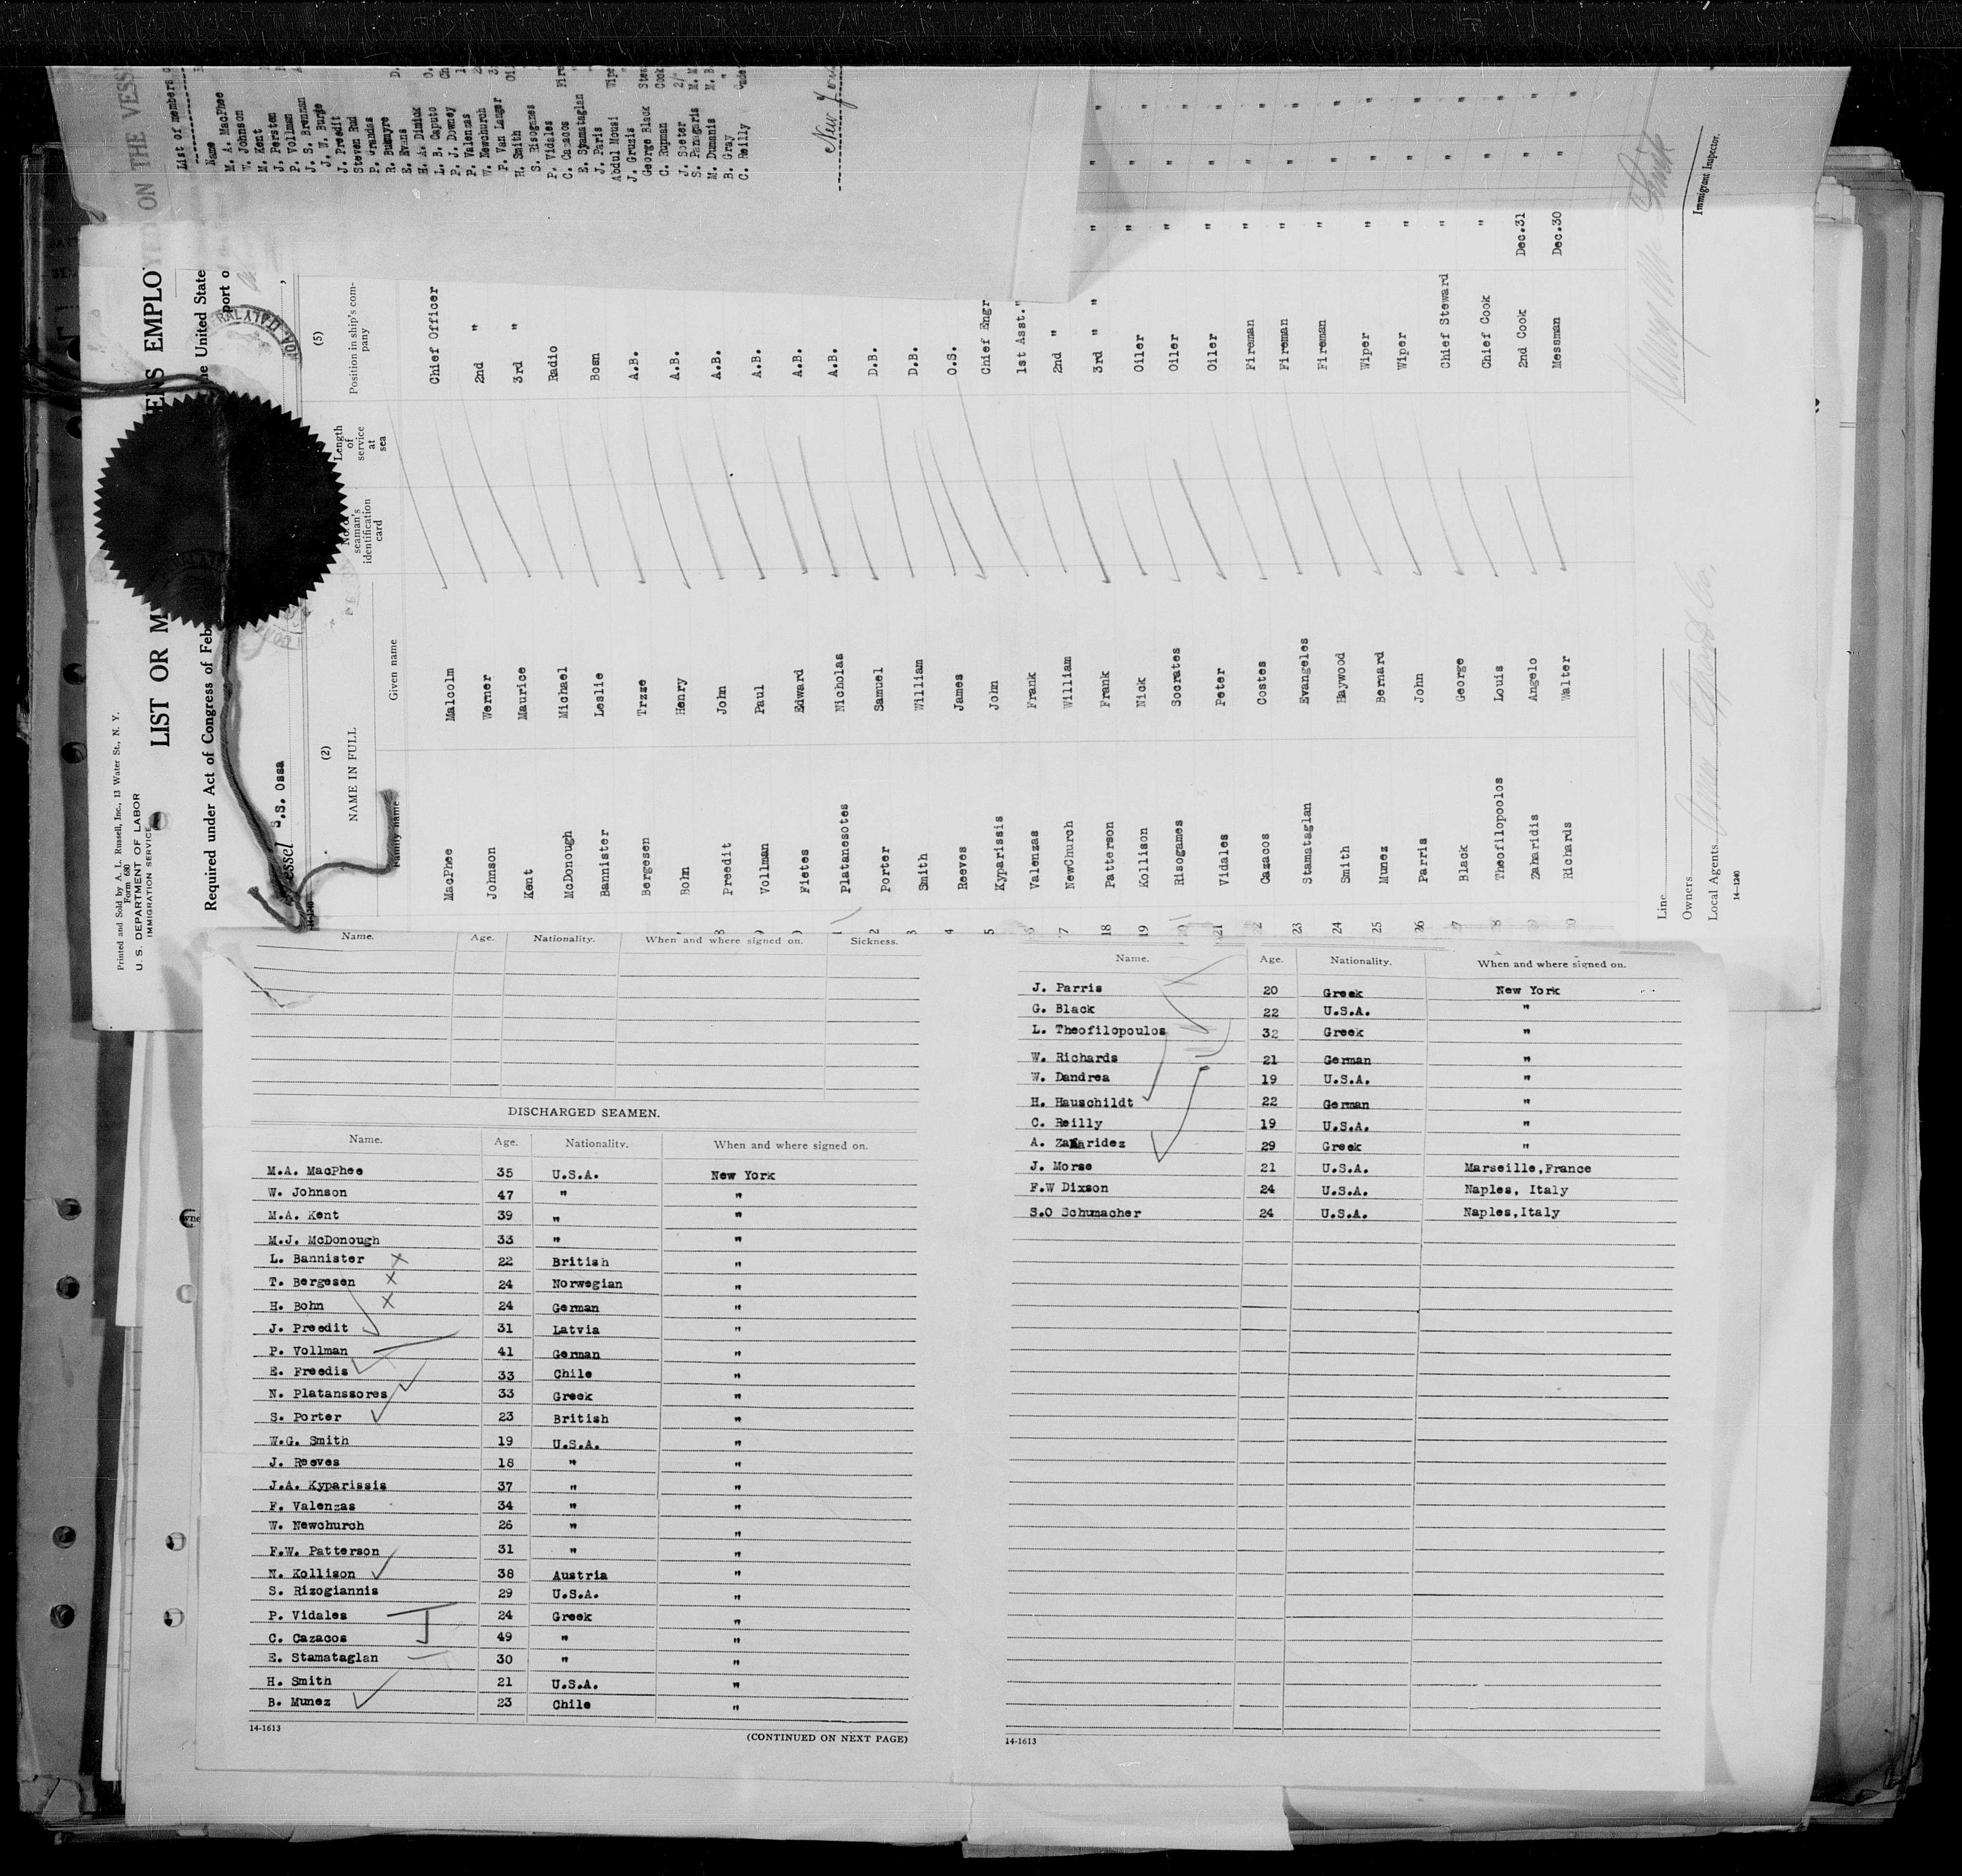 ON THE VESS
List of members o
Name
M. A. MacPhee
W. Johnson
M. Kent
J. Persten
P. Vollman
J. S. Brennan
J. W. Burge
J. Preedit
Steven Rud
P. Grandas
R. Bukmyre D.
E. Evans
H. A. Dimick O.
L. B. Caputo Ch
P. J. Downey 1
P. Valenzas 2
W. Newchurch 3
P. Van Langer
H. Smith Oil
S. Risogans
P. Vidales Fire
C. Cazacos "
E. Stamataglan "
J. Paris Wipe
Abdul Mousi "
J. Gruzis
George Black Stew
C. Rupman Cook
J. Soeter 2/
S. Panagaris M. M
M. Dumanis M. B
B. Gray "
C. Reilly
New York
Printed and Sold by A. L. Russell, Inc., 13 Water St., N. Y.
Form 680
U. S. DEPARTMENT OF LABOR
IMMIGRATION SERVICE
LIST OR M ENS EMPLO
Required under Act of Congress of Feb he United State
port o
essel S.S. Ossa
(2) (5)
NAME IN FULL
Family name Given name
No. of seaman's identification card
Length of service at sea
Position in ship's company
MacPhee Malcolm Chief Officer
Johnson Werner 2nd "
Kent Maurice 3rd "
McDonough Michael Radio
Bannister Leslie Bosn
Bergesen Trzze A.B.
Bohn Henry A.B.
8 Preedit John A.B.
9 Vollman Paul A.B.
Fietes Edward A.B.
1 Platanesotes Nicholas A.B.
2 Porter Samuel D.B.
3 Smith William D.B.
4 Reeves James O.S.
5 Kyparissis John Chief Engr
6 Valenzas Frank 1st Asst."
7 NewChurch William 2nd "
18 Patterson Frank 3rd " " " " "
19 Kollison Nick Oiler " " "
20 Risogames Socrates Oiler " " "
21 Vidales Peter Oiler " " "
22 Cazacos Costes Fireman " " "
23 Stamataglan Evangeles Fireman " " "
24 Smith Haywood Fireman " " "
25 Munez Bernard Wiper " " "
26 Parris John Wiper " " "
27 Black George Chief Steward " " "
28 Theofilopoolos Louis Chief Cook " " "
29 Zaharidis Angelo 2nd Cook Dec.31 " "
30 Richards Walter Messman Dec.30 " "
Immigrant Inspector.
Line
Owners
Local Agents
14—1240
Name. Age. Nationality. When and where signed on. Sickness.
DISCHARGED SEAMEN.
Name. Age. Nationality. When and where signed on.
M.A. MacPhee 35 U.S.A. New York
W. Johnson 47 " "
M.A. Kent 39 " "
M.J. McDonough 33 " "
L. Bannister X 22 British "
T. Bergesen X 24 Norwegian "
H. Bohn X 24 German "
J. Preedit 31 Latvia "
P. Vollman 41 German "
E. Freedis 33 Chile "
N. Platanssores 33 Greek "
S. Porter 23 British "
W.G. Smith 19 U.S.A. "
J. Reeves 18 " "
J.A. Kyparissis 37 " "
F. Valenzas 34 " "
W. Newchurch 26 " "
F.W. Patterson 31 " "
N. Kollison 38 Austria "
S. Rizogiannis 29 U.S.A. "
P. Vidales 24 Greek "
C. Cazacos 49 " "
E. Stamataglan 30 " "
H. Smith 21 U.S.A. "
B. Munez 23 Chile "
14-1613 (CONTINUED ON NEXT PAGE)
Name. Age. Nationality. When and where signed on.
J. Parris 20 Greek New York
G. Black 22 U.S.A. "
L. Theofilopoulos 32 Greek "
W. Richards 21 German "
W. Dandrea 19 U.S.A. "
H. Hauschildt 22 German "
C. Reilly 19 U.S.A. "
A. Zaharidez 29 Greek "
J. Morse 21 U.S.A. Marseille,France
F.W Dixson 24 U.S.A. Naples, Italy
S.O Schumacher 24 U.S.A. Naples,Italy
14-1613